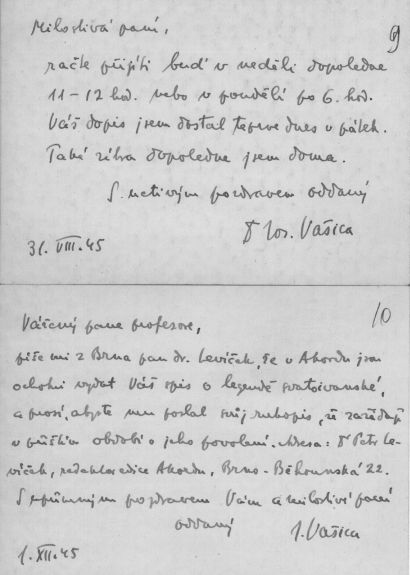 9
Milostivá paní,
račte přijíti buď v neděli dopoledne
11-12 hod. nebo v pondělí po 6. hod.
Váš dopis jsem dostal teprve dnes v pátek.
Také zítra dopoledne jsem doma.
S uctivým pozdravem oddaný
Dr Jos. Vašica
31. VIII. 45
10
Vážený pane profesore,
píše mi z Brna pan dr. Levíček, že v Akordu jsou
ochotni vydat Váš spis o legendě svatoivanské,
a prosí, abyste mu poslal svůj rukopis, že zažádají
v příštím období o jeho povolení. Adresa: Dr Petr Le-
víček, redaktor edice Akordu, Brno - Běhounská 22.
S upřímným pozdravem Vám a milostivé paní
oddaný
J. Vašica
1. XII. 45